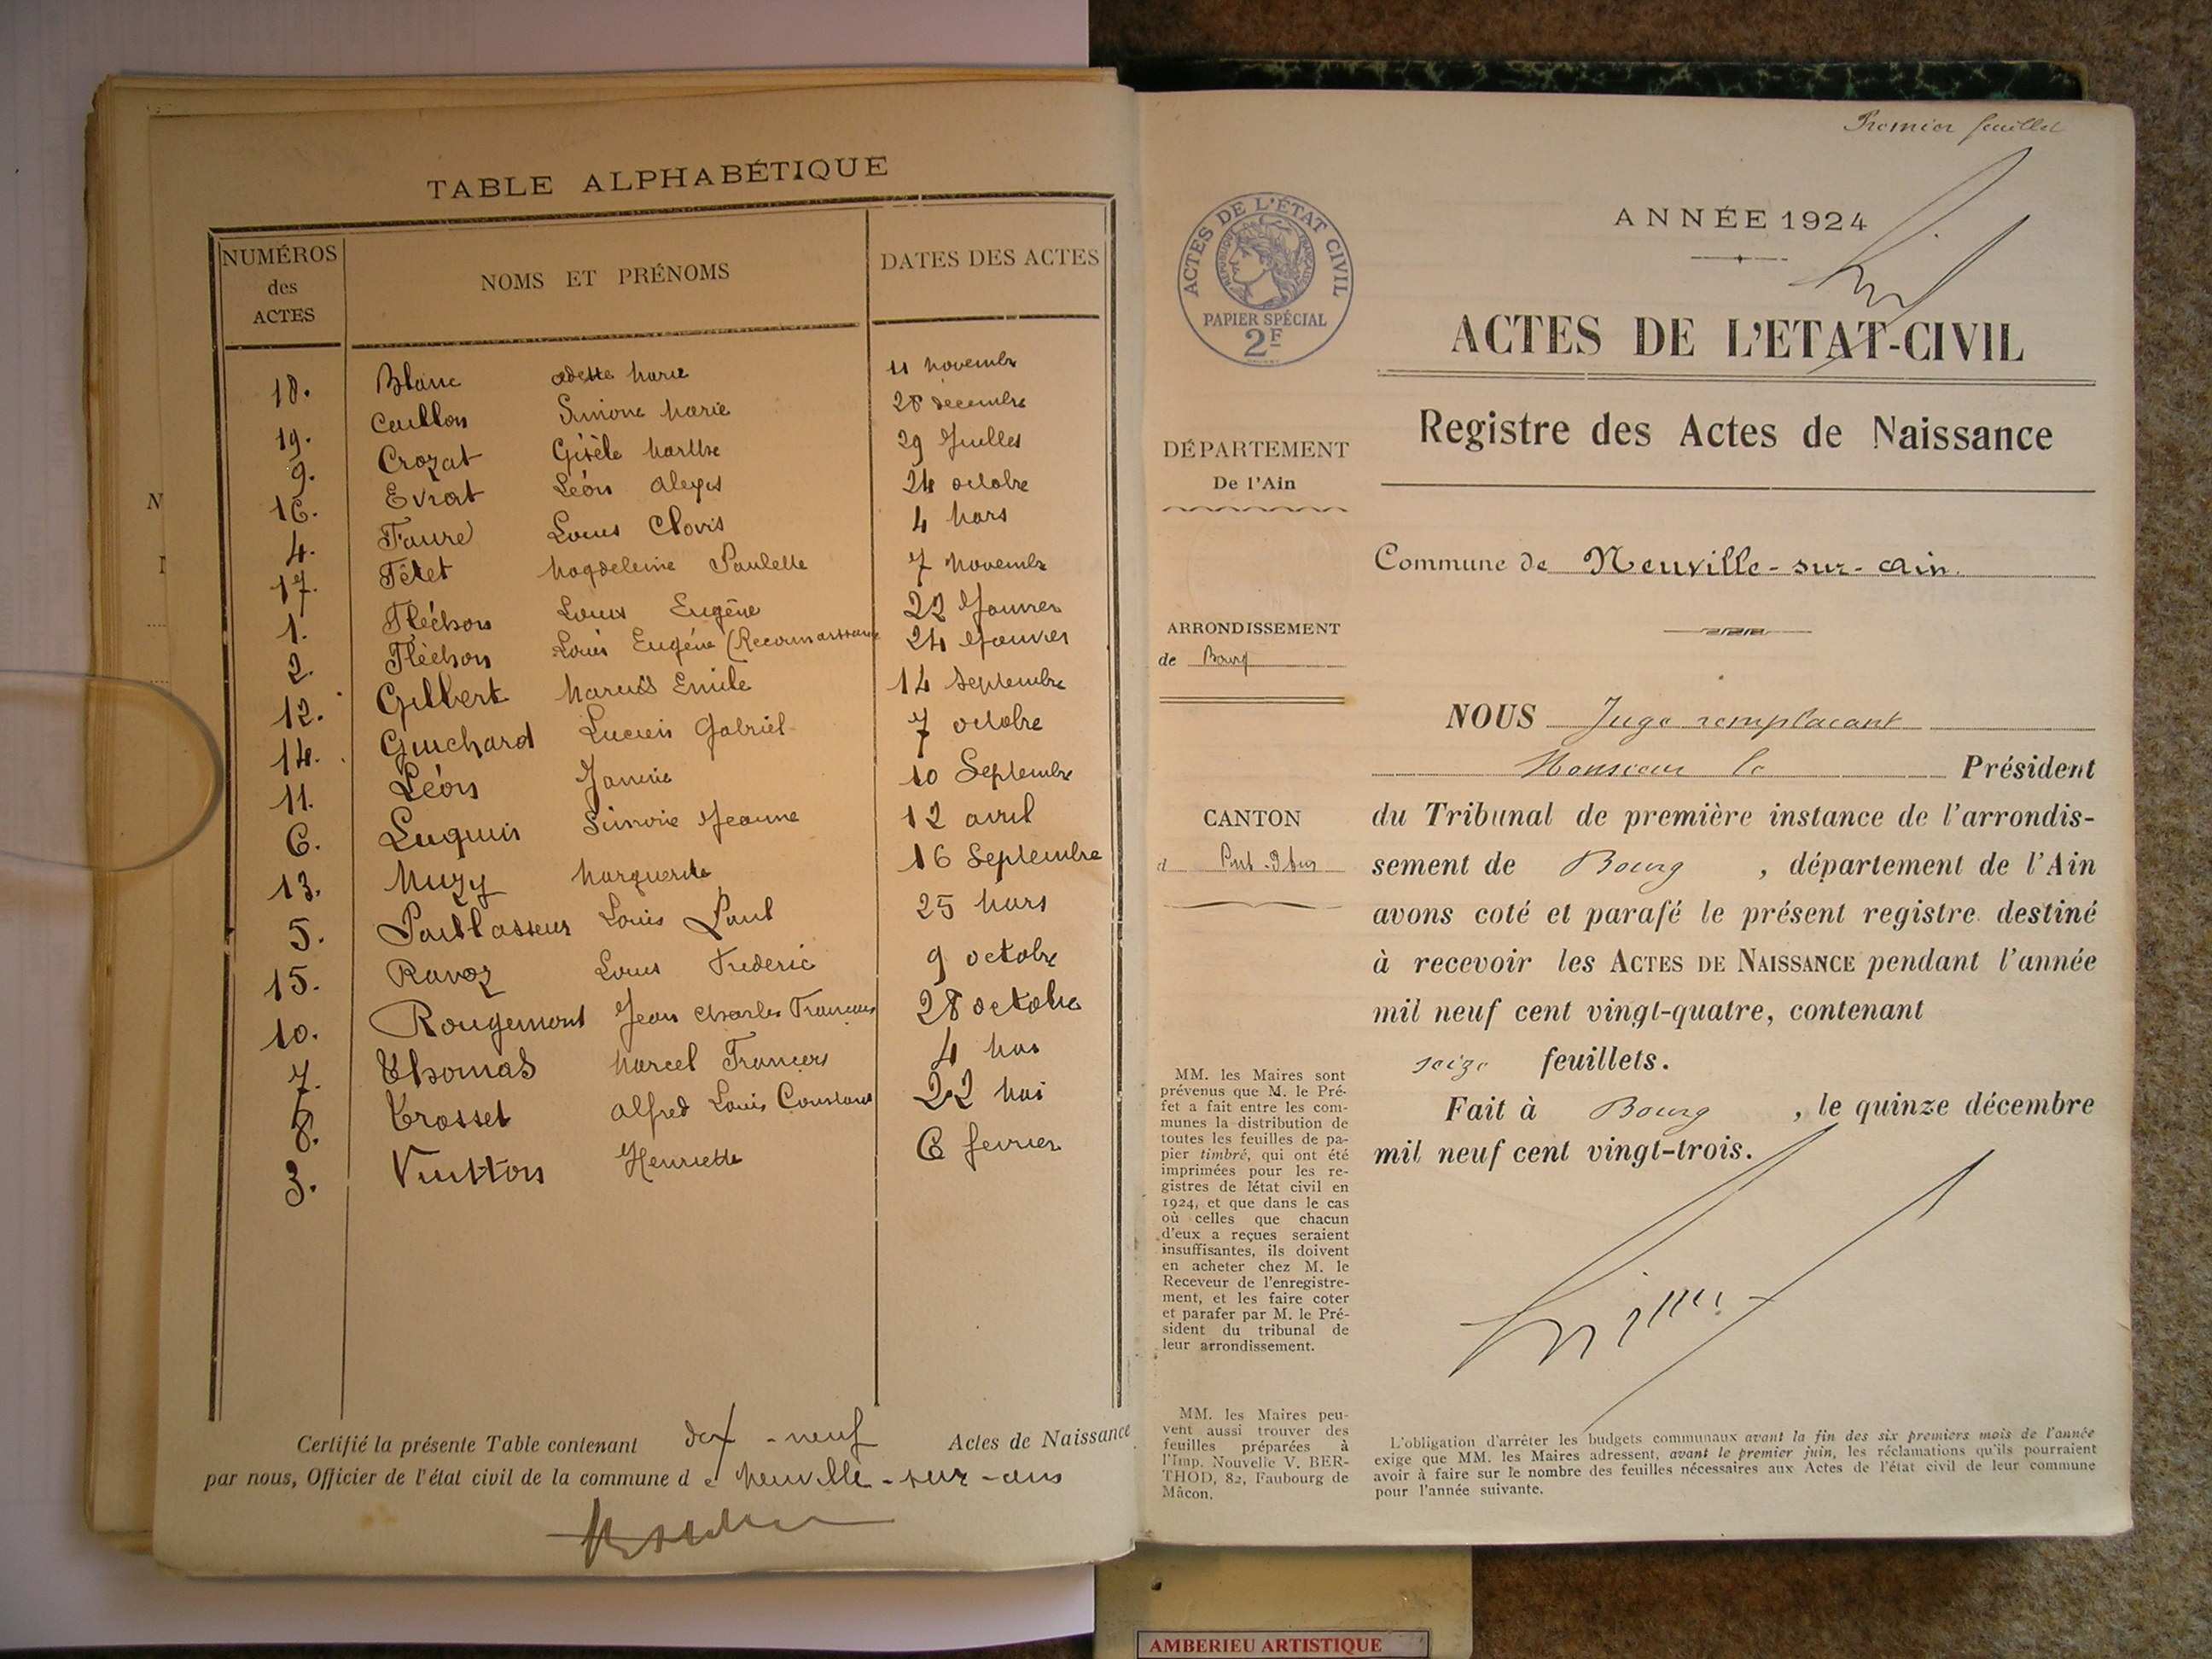 TABLE ALPHABÉTIQUE
NUMÉROS des ACTES NOMS ET PRÉNOMS DATES DES ACTES
18. Blanc Odette Marie 11 Novembre
19. Caillon Simone Marie 28 Decembre
9. Crozat Gisèle Marthe 29 Juillet
16. Evrat Léon Alexis 24 octobre
4. Faure Louis Clovis 4 Mars
17. Fétet Magdeleine Paulette 7 Novembre
1. Fléchon Louis Eugène 22 Janvier
2. Fléchon Louis Eugène (Reconnaissance 24 Janvier
12. Gilbert Marius Emile 14 Septembre
14. Guichard Lucien Gabriel 7 octobre
11. Léon Janine 10 Septembre
6. Luquin Simone Jeanne 12 avril
13. Muzy Marguerite 16 Septembre
5. Paillasseur Louis Paul 25 Mars
15. Ravoz Louis Frederic 9 octobre
10. Rougemont Jean Charles Francois 28 octobre
7. Thomas Marcel Francois 4 Mai
8. Trosset Alfred Louis Constant 22 Mai
3. Vuitton Henriette 6 fevrier
Certifié la présente Table contenant dix-neuf Actes de Naissance
par nous, Officier de l'état civil de la commune de Neuville-sur-ain
Premier feuillet
ACTES DE L'ÉTAT CIVIL
RÉPUBLIQUE FRANÇAISE
PAPIER SPÉCIAL
2F
ANNÉE 1924
ACTES DE L'ETAT-CIVIL
Registre des Actes de Naissance
DÉPARTEMENT
De l'Ain
Commune de Neuville-sur-ain.
ARRONDISSEMENT
de Bourg
CANTON
d
NOUS Juge remplacant
Monsieur le Président
du Tribunal de première instance de l'arrondis-
sement de Bourg, département de l'Ain
avons coté et parafé le présent registre destiné
à recevoir les ACTES DE NAISSANCE pendant l'année
mil neuf cent vingt-quatre, contenant
seize feuillets.
Fait à Bourg, le quinze décembre
mil neuf cent vingt-trois.
MM. les Maires sont
prévenus que M. le Pré-
fet a fait entre les com-
munes la distribution de
toutes les feuilles de pa-
pier timbré, qui ont été
imprimées pour les re-
gistres de l'état civil en
1924, et que dans le cas
où celles que chacun
d'eux a reçues seraient
insuffisantes, ils doivent
en acheter chez M. le
Receveur de l'enregistre-
ment, et les faire coter
et parafer par M. le Pré-
sident du tribunal de
leur arrondissement.
MM. les Maires peu-
vent aussi trouver des
feuilles préparées à
l'Imp. Nouvelle V. BER-
THOD, 82, Faubourg de
Mâcon.
L'obligation d'arrêter les budgets communaux avant la fin des six premiers mois de l'année
exige que MM. les Maires adressent, avant le premier juin, les réclamations qu'ils pourraient
avoir à faire sur le nombre des feuilles nécessaires aux Actes de l'état civil de leur commune
pour l'année suivante.
AMBERIEU ARTISTIQUE